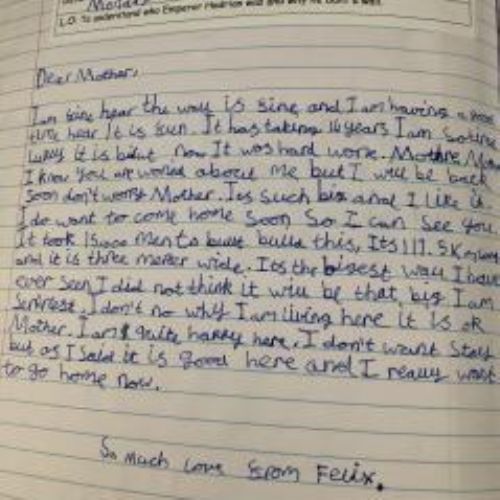 L.O. To understand who Emperor Hadrian was and why he built a wall.
Dear Mother,
I am hear the wall is and I am having a
time hear It is fun. It has taking 16 years I am
it is now It was hard work. Mother
I know you are about me but I will be back
soon don't worry Mother. Its such big and I like it
I do want to come home soon so I can see you.
It took 15000 men to build this, Its 117.5 km long
and it is three wide. Its the wall I have
ever seen I did not think it will be that big I am
I don't no why I am living here it is ok
Mother. I am quite happy here. I don't want stay
but as I said it is good here and I really want
to go home now.
So much Love from Felix.